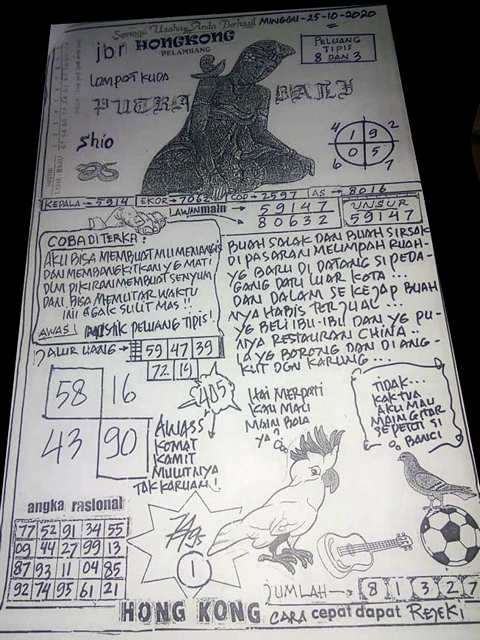 Semoga Usaha Anda Berhasil MINGGU-25-10-2020
jbr HONGKONG
PALEMBANG
PELUANG
TIPIS
8 DAN 3
LOMPAT KUDA
PUTRA BALI
Shio
4 1 9 2
6 0 5 7
KEPALA → 5914 EKOR → 7062 COD → 2597 AS → 8016
LAWAN main → 59147
80632
UNSUR
59147
COBA DITERKA:
AKU BISA MEMBUATMU MENANGIS
DAN MEMBANGKITKAN YG MATI
DLM PIKIRAN MEMBUAT SENYUM
DAN BISA MEMUTAR WAKTU
INI AGAK SULIT MAS !!
AWAS! peluang tipis!
BUAH SALAK DAN BUAH SIRSAK
DI PASARAN MELIMPAH RUAH
YG BARU DI DATANG SI PEDA-
GANG DARI LUAR KOTA ...
DAN DALAM SEKEJAP BUAH
NYA HABIS TERJUAL ...
YG BELI IBU-IBU DAN YG PU-
NYA RESTAURAN CHINA ..
IA YG BORONG DAN DI ANG-
KUT DGN KARUNG ...
JALUR UANG → 59 47 39
72 19
58 16
43 90
405
AWASS
KOMAT
KAMIT
MULUTNYA
TAK KARUAN!
HAI MERPATI
KAU MAU
MAIN BOLA
YA?
TIDAK...
KAKTUA
AKU MAU
MAIN GITAR
SI
BANCI
angka rasional
77 52 91 34 55
09 44 27 99 13
87 93 11 04 85
92 74 95 61 21
1
JUMLAH → 8 1 3 2 7
HONG KONG CARA cepat dapat REJEKI